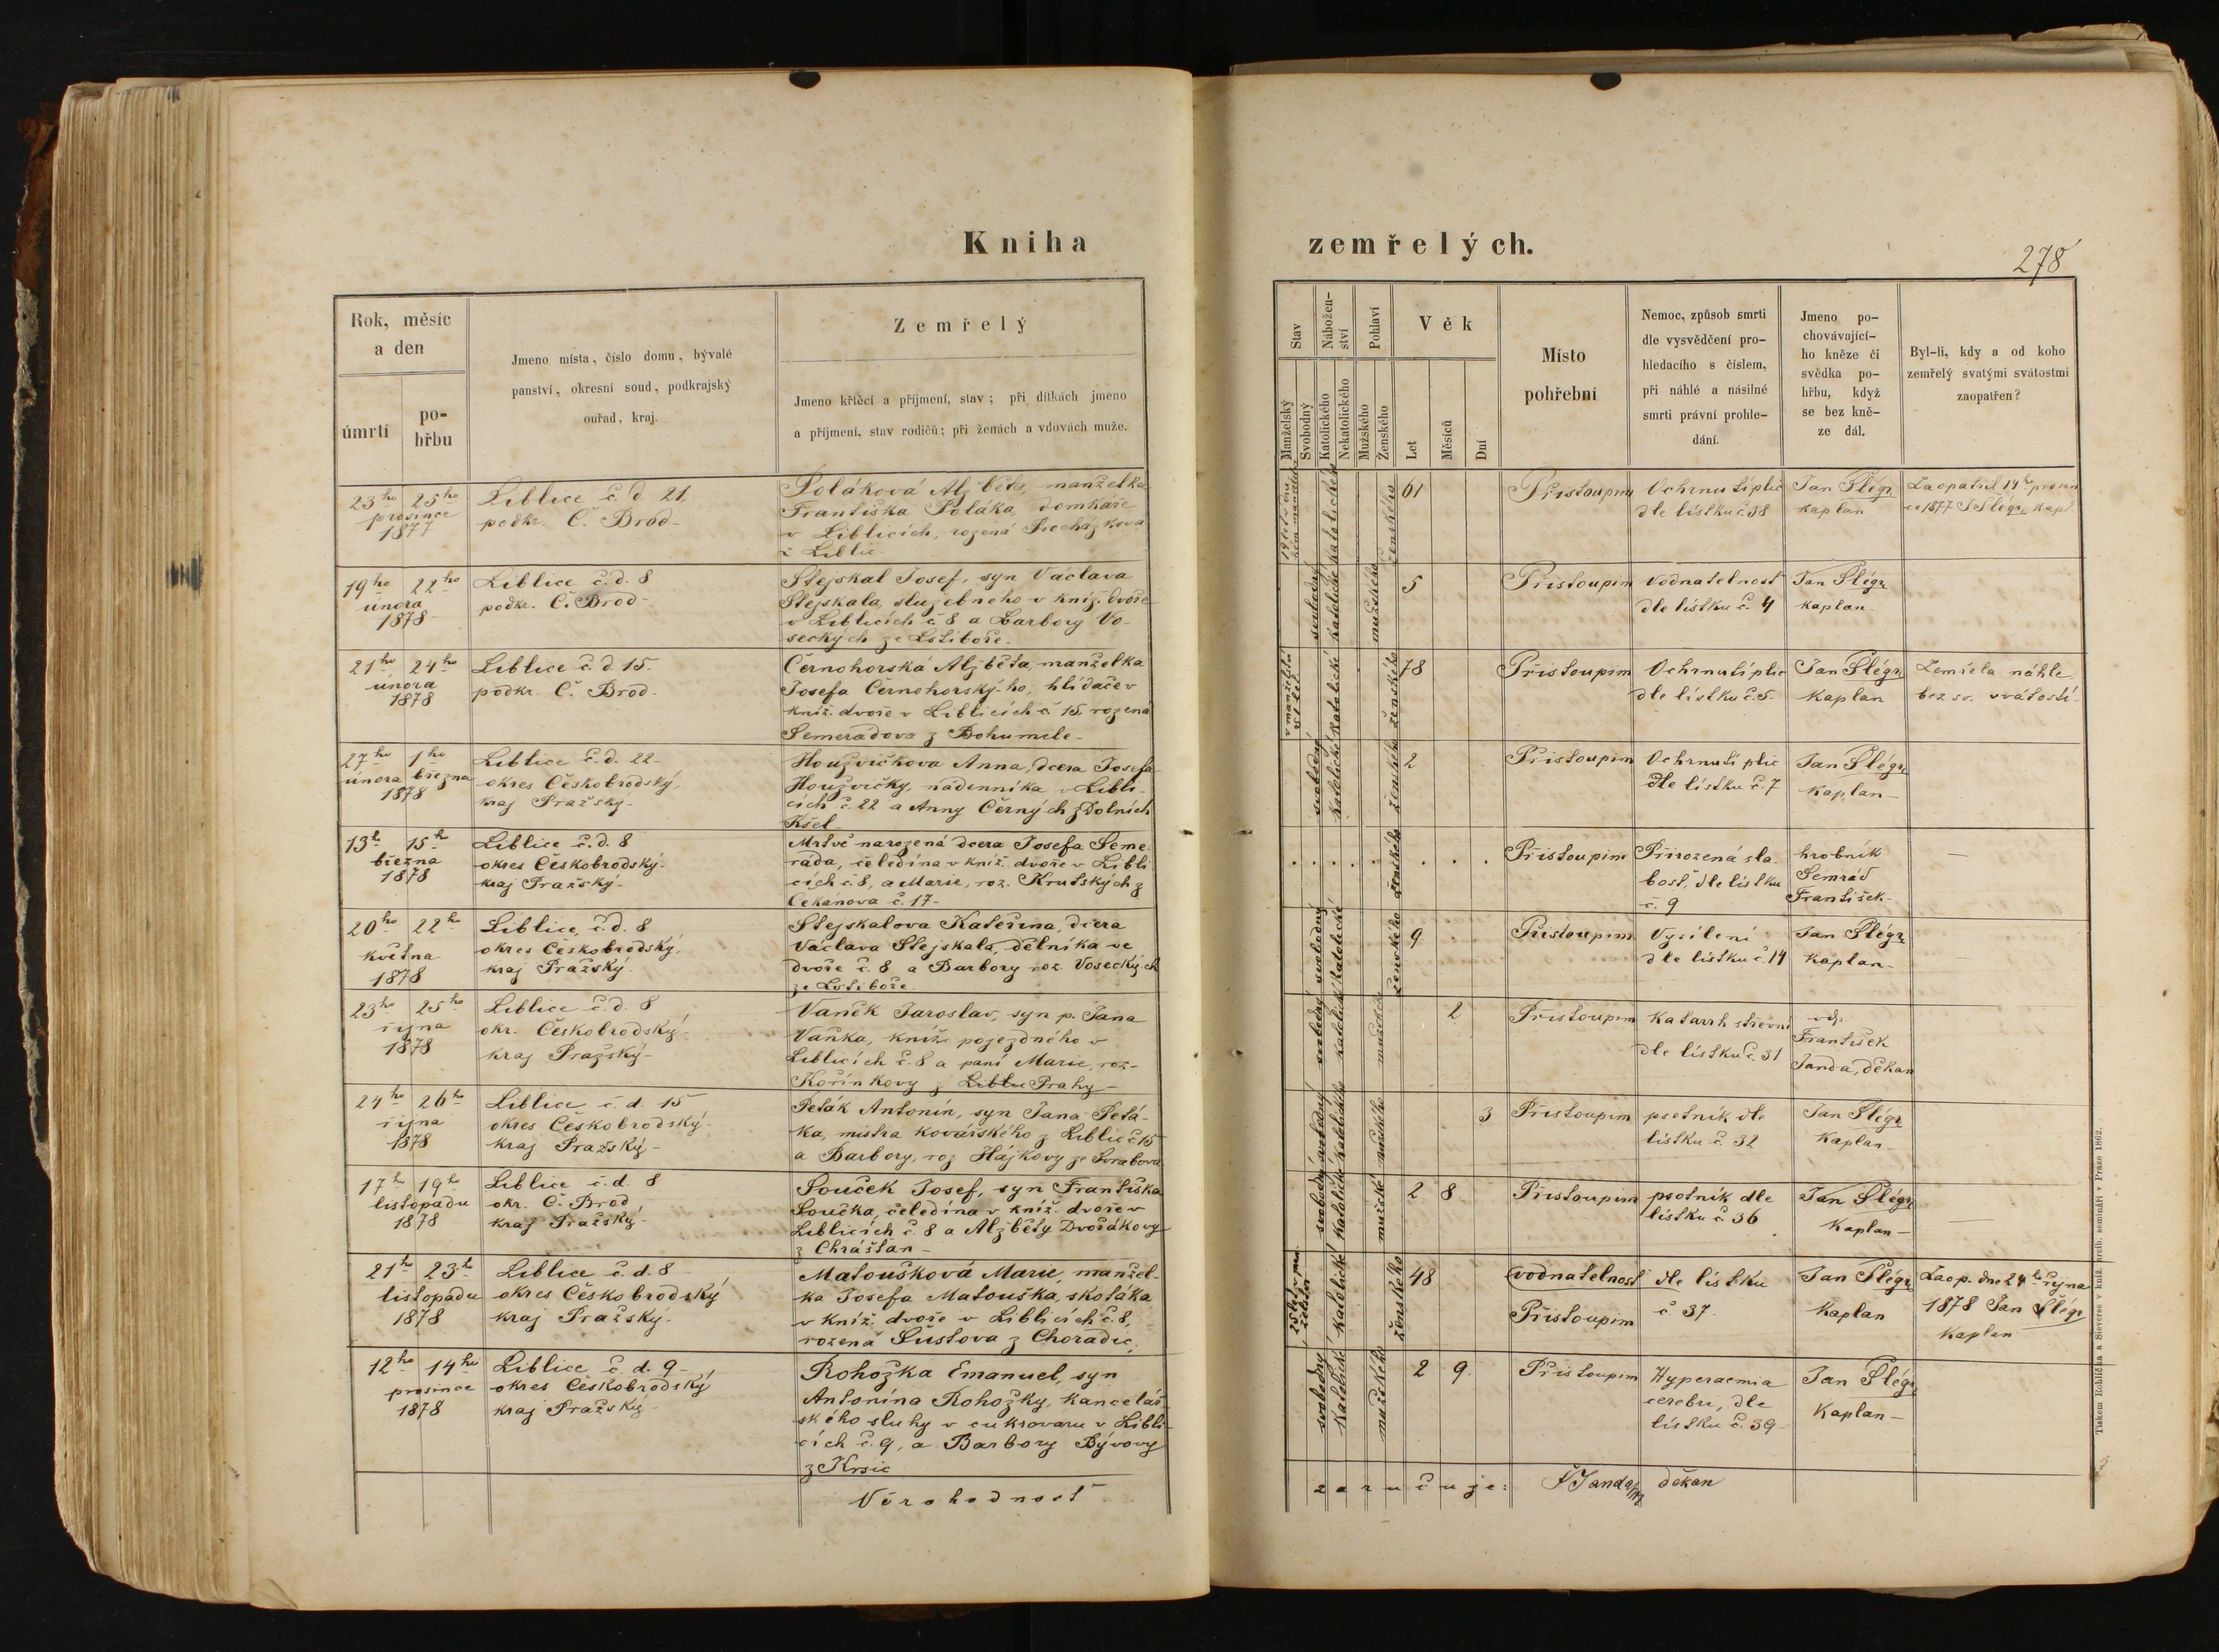 Kniha
zemřelých.
278
Rok, měsíc
a den
úmrtí
po-
hřbu
Jmeno místa, číslo domu, bývalé
panství, okresní soud, podkrajský
ouřad, kraj.
Zemřelý
Jmeno křtěcí a příjmení, stav; při dítkách jmeno
a příjmení, stav rodičů; při ženách a vdovách muže.
Stav
Manželský
Svobodný
Nábožen-
ství
Katolického
Nekatolického
Pohlaví
Mužského
Ženského
Věk
Let
Měsíců
Dní
Místo
pohřební
Nemoc, způsob smrti
dle vysvědčení pro-
hledacího s číslem,
při náhlé a násilné
smrti právní prohle-
dání.
Jmeno po-
chovávající-
ho kněze či
svědka po-
hřbu, když
se bez kně-
ze dál.
Byl-li, kdy a od koho
zemřelý svatými svátostmi
zaopatřen?
23ho 25ho
prosince
1877
Liblice č d 21
podkr. Č. Brod
Poláková Alžběta, manželka
Františka Poláka, domkáře
v Liblicích, rozená Procházkova
z Liblic
katolické
ženského
61
Přistoupim
Ochrnutí plic
dle lístku č 38
Jan Šlégr
kaplan
Zaopatřil 14ho prosin
ce 1877 J Šlégr kapl
19ho 22ho
února
1878
Liblice č. d. 8
podkr. Č. Brod
Stejskal Josef, syn Václava
Stejskala, služebného v kníž. dvoře
v Liblicích č 8 a Barbory Vo-
seckých ze Lstiboře.
svobodný
katolické
mužského
5
Přistoupim
Vodnatelnost
dle lístku č. 4
Jan Šlégr
kaplan
21ho 24ho
února
1878
Liblice č. d. 15
podkr. Č. Brod.
Černohorská Alžběta, manželka
Josefa Černohorského, hlídače v
kníž. dvoře v Liblicích č 15, rozená
Semerádova z Bohumile
katolické
ženského
78
Přistoupim
Ochrnutí plic
dle lístku č. 5.
Jan Šlégr
kaplan
Zemřela náhle
bez sv. svátostí
27ho 1ho
února března
1878
Liblice č. d. 22
okres Českobrodský,
kraj Pražský
Houžvičkova Anna, dcera Josefa
Houžvičky, nádenníka v Libli-
cích č. 22 a Anny Černých z Dolních
Kšel
svobodný
katolické
ženského
2
Přistoupim
Ochrnutí plic
dle lístku č. 7
Jan Šlégr
kaplan
13ho 15ho
března
1878
Liblice č. d. 8
okres Českobrodský
kraj Pražský
Mrtvě narozená dcera Josefa Seme-
ráda, čeledína v kníž. dvoře v Libli
cích č. 8, a Marie, roz. Krutských z
Čekanova č. 17
ženského
Přistoupim
Přirozená sla-
bost, dle lístku
č. 9
hrobník
Semrád
František
20ho 22ho
května
1878
Liblice, č. d. 8
okres Českobrodský.
kraj Pražský
Stejskalova Kateřina, dcera
Václava Stejskala, dělníka ve
dvoře č. 8 a Barbory roz. Voseckých
ze Lstiboře
svobodný
katolické
ženského
9
Přistoupim
Vysílení
dle lístku č. 14
Jan Šlégr
kaplan
23ho 25ho
října
1878
Liblice č. d. 8
okr. Českobrodský
kraj Pražský
Vaněk Jaroslav, syn p. Jana
Vaňka, kníž. pojezdného v
Liblicích č. 8 a paní Marie, roz.
Kořínkovy z Liblic Prahy
svobodný
katolické
mužské
2
Přistoupim
Katarrh střevní
dle lístku č. 31
vdp.
František
Janda, děkan
24ho 26ho
října
1878
Liblice č. d. 15
okres Českobrodský
kraj Pražský
Peták Antonín, syn Jana Petá-
ka, mistra kovářského z Liblic č 15
a Barbory, roz Hájkovy ze Svrabova
svobodný
katolického
mužského
3
Přistoupim
psotník dle
lístku č. 32
Jan Šlégr
kaplan
17ho 19ho
listopadu
1878
Liblice č. d. 8
okr. Č. Brod
kraj Pražský
Souček Josef, syn Františka
Součka, čeledína v kníž. dvoře v
Liblicích č. 8 a Alžběty Dvořákovy
z Chrášťan
svobodný
katolické
mužské
2 8
Přistoupim
psotník dle
lístku č 36
Jan Šlégr
kaplan
21ho 23ho
listopadu
1878
Liblice č. d. 8
okres Českobrodský
kraj Pražský
Matoušková Marie, manžel-
ka Josefa Matouška, skotáka
v kníž. dvoře v Liblicích č. 8,
rozená Šustova z Choradic,
katolické
ženského
48
vodnatelnost
Přistoupim
dle lístku
č 37.
Jan Šlégr
kaplan
Zaop. dne 24ho října
1878 Jan Šlégr
kaplan
12ho 14ho
prosince
1878
Liblice č. d. 9
okres Českobrodský
kraj Pražský
Rohožka Emanuel, syn
Antonína Rohožky, kancelář-
ského sluhy v cukrovaru v Libli-
cích č. 9, a Barbory Bývovy
z Krsic
svobodný
katolické
mužského
2 9
Přistoupim
Hyperaemia
cerebri, dle
lístku č. 39
Jan Šlégr
kaplan
Věrohodnost
zaručuje:
F Janda
děkan
Tiskem Rohlíčka a Sieverse v kníž. arcib. semináři v Praze 1862.